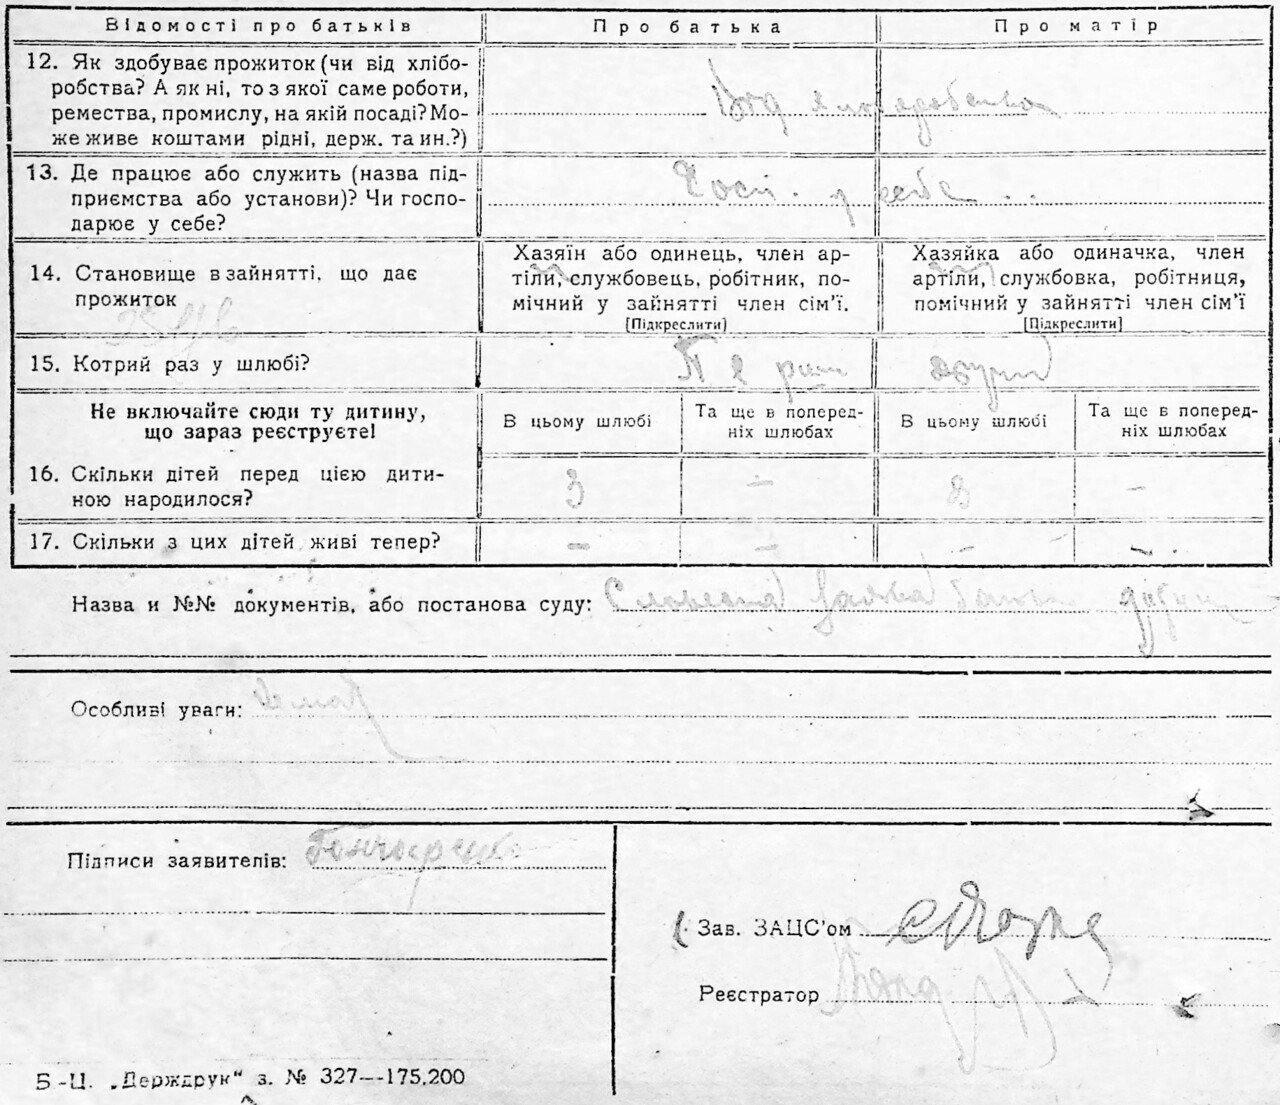 Відомості про батьків
Про батька
Про матір
12. Як здобуває прожиток (чи від хлібо-
робства? А як ні, то з якої саме роботи,
ремества, промислу, на якій посаді? Мо-
же живе коштами рідні, держ. та ин.?)
13. Де працює або служить (назва під-
приємства або установи)? Чи госпо-
дарює у себе?
Госп. у себе
14. Становище в зайнятті, що дає
прожиток
Хазяїн або одинець, член ар-
тіли, службовець, робітник, по-
мічний у зайнятті член сім’ї.
[Підкреслити]
Хазяйка або одиначка, член
артіли, службовка, робітниця,
помічний у зайнятті член сім’ї
[Підкреслити]
15. Котрий раз у шлюбі?
Перш
другий
Не включайте сюди ту дитину,
що зараз реєструєте!
В цьому шлюбі
Та ще в поперед-
ніх шлюбах
В цьому шлюбі
Та ще в поперед-
ніх шлюбах
16. Скільки дітей перед цією дити-
ною народилося?
3
–
–
17. Скільки з цих дітей живі тепер?
–
–
–
–
Назва и №№ документів, або постанова суду: Словесна заява
Особливі уваги:
Підписи заявителів: Гончаренко
Зав. ЗАЦС’ом
Реєстратор
Б-Ц. „Держдрук“ з. № 327—175.200